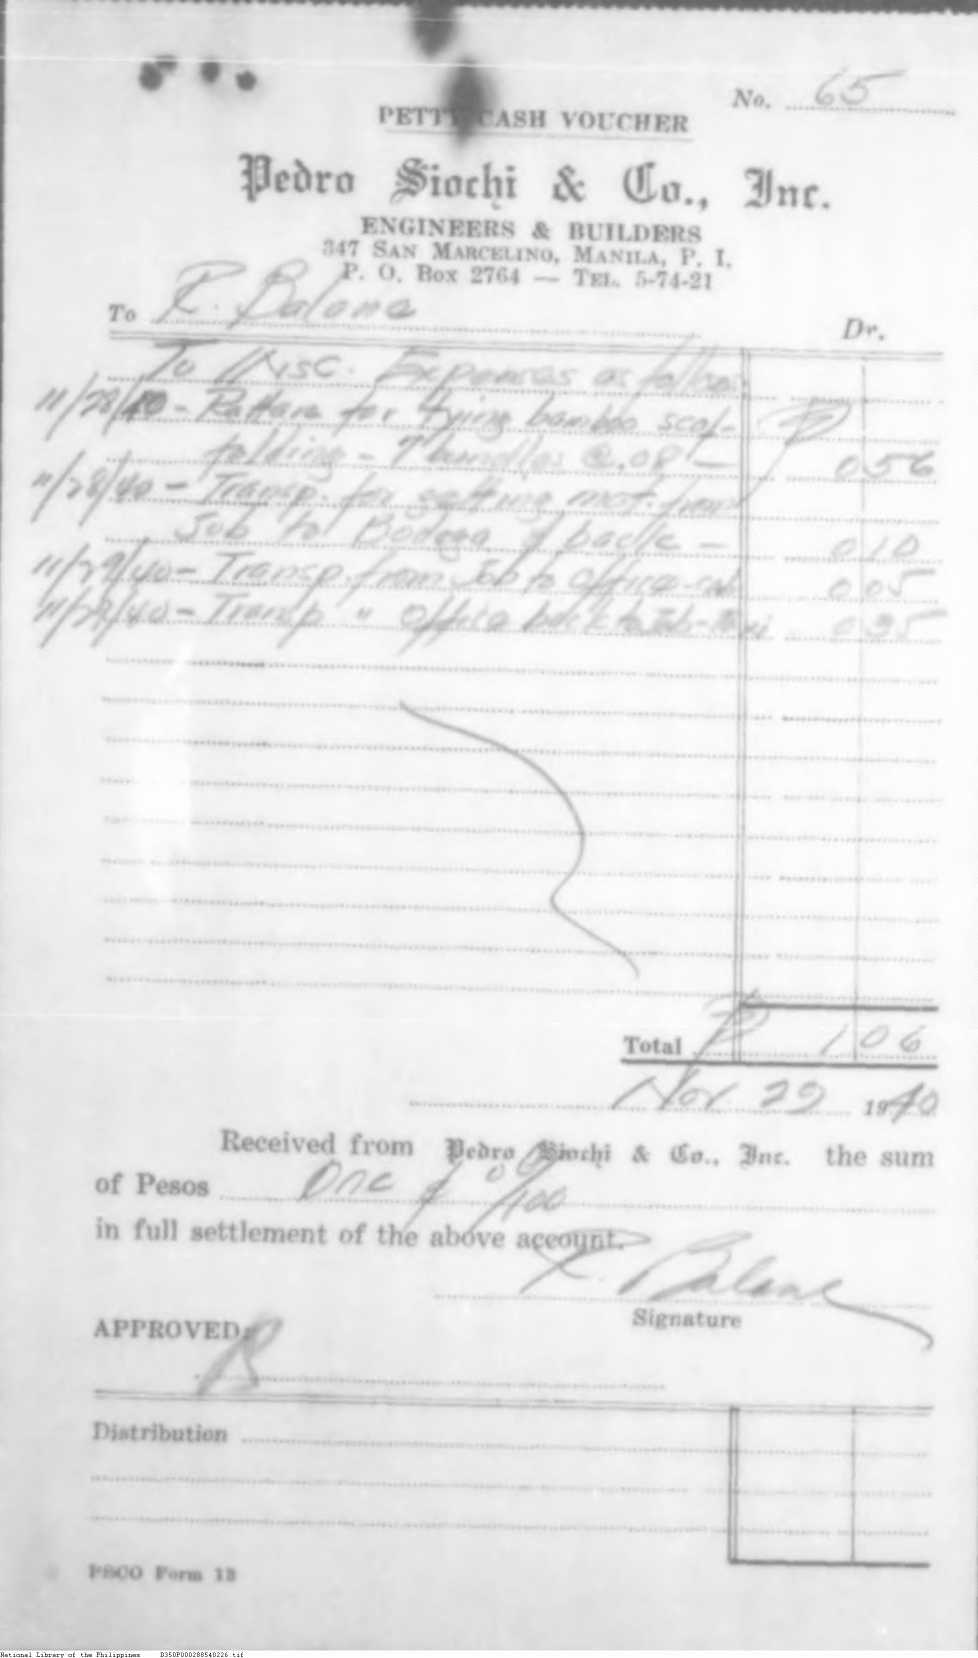 No. 65
PETTY CASH VOUCHER
Pedro Siochi & Co., Inc.
ENGINEERS & BUILDERS
347 SAN MARCELINO, MANILA, P. I.
P. O. Box 2764 — TEL. 5-74-21
To R. Balane
Dr.
To Misc. Expenses as follows
11/28/40 - Rattan for tying bamboo scaf-
folding - 7 bundles @ .08 — ₱ 0 56
11/28/40 - Transp. for getting mat. from
Job to Bodega & back — 0 10
11/29/40 - Transp. from Job to office 0 05
11/29/40 - Transp " office back to Job 0 35
Total ₱ 1 06
Nov. 29 1940
Received from Pedro Siochi & Co., Inc. the sum
of Pesos One & 06/100
in full settlement of the above account.
R. Balane
Signature
APPROVED:
Distribution
PSCO Form 13
National Library of the Philippines D350P000288540226.tif